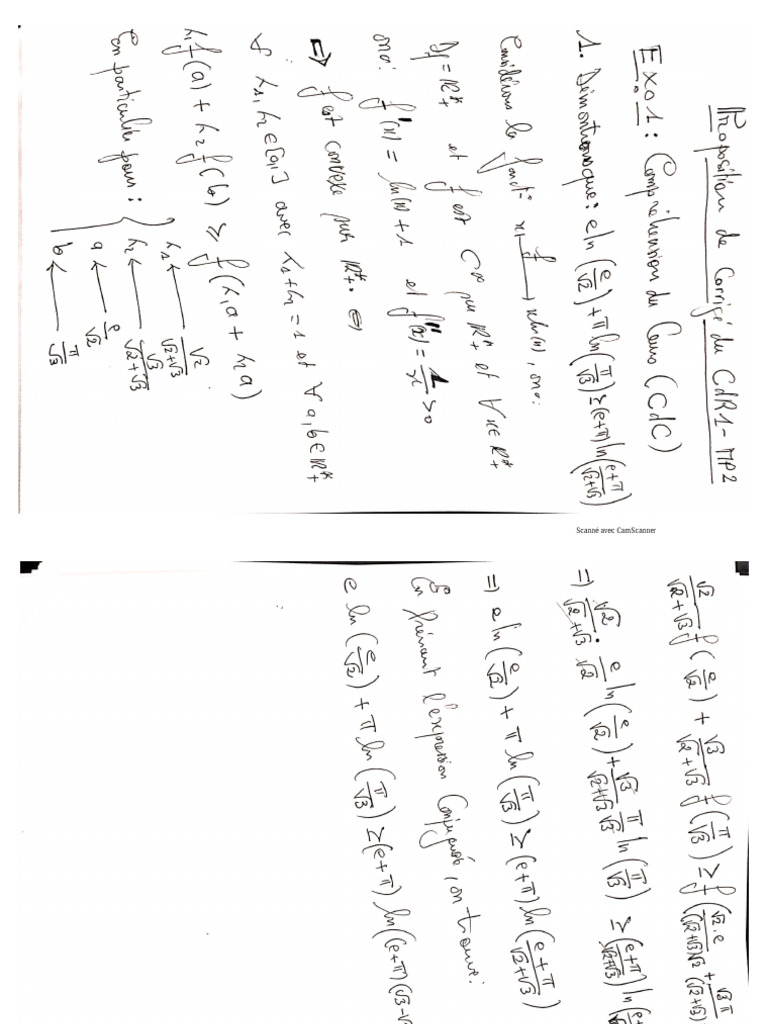 Proposition de Corrigé du CdR1-MP2
Exo1: Compréhension du Cours (CdC)
1. Démontrons que: e ln(e/√2) + π ln(π/√3) ≥ (e+π) ln((e+π)/(√2+√3))
Considérons la fonct° x ↦ x ln(x), on a:
Df = ℝ*₊ et f est C∞ sur ℝ*₊ et ∀ x ∈ ℝ*₊
on a: f'(x) = ln(x) + 1 et f''(x) = 1/x > 0
⇒ f est convexe sur ℝ*₊ ⇔
∀ λ₁, λ₂ ∈ [0,1] avec λ₁+λ₂ = 1 et ∀ a, b ∈ ℝ*₊
λ₁f(a) + λ₂f(b) ≥ f(λ₁a + λ₂a)
En particulier pour: { λ₁ ← √2/(√2+√3)
λ₂ ← √3/(√2+√3)
a ← e/√2
b ← π/√3
Scanné avec CamScanner
√2/(√2+√3) f(e/√2) + √3/(√2+√3) f(π/√3) ≥ f(√2.e/((√2+√3)√2) + √3π/(√2+√3)
⇒ √2/(√2+√3) . e/√2 ln(e/√2) + √3/(√2+√3) π/√3 ln(π/√3) ≥ (e+π)/(√2+√3) ln(
⇒ e ln(e/√2) + π ln(π/√3) ≥ (e+π) ln((e+π)/(√2+√3))
En prénant l'expression Conjuguée, on trouve:
e ln(e/√2) + π ln(π/√3) ≥ (e+π) ln((e+π)(√3-√